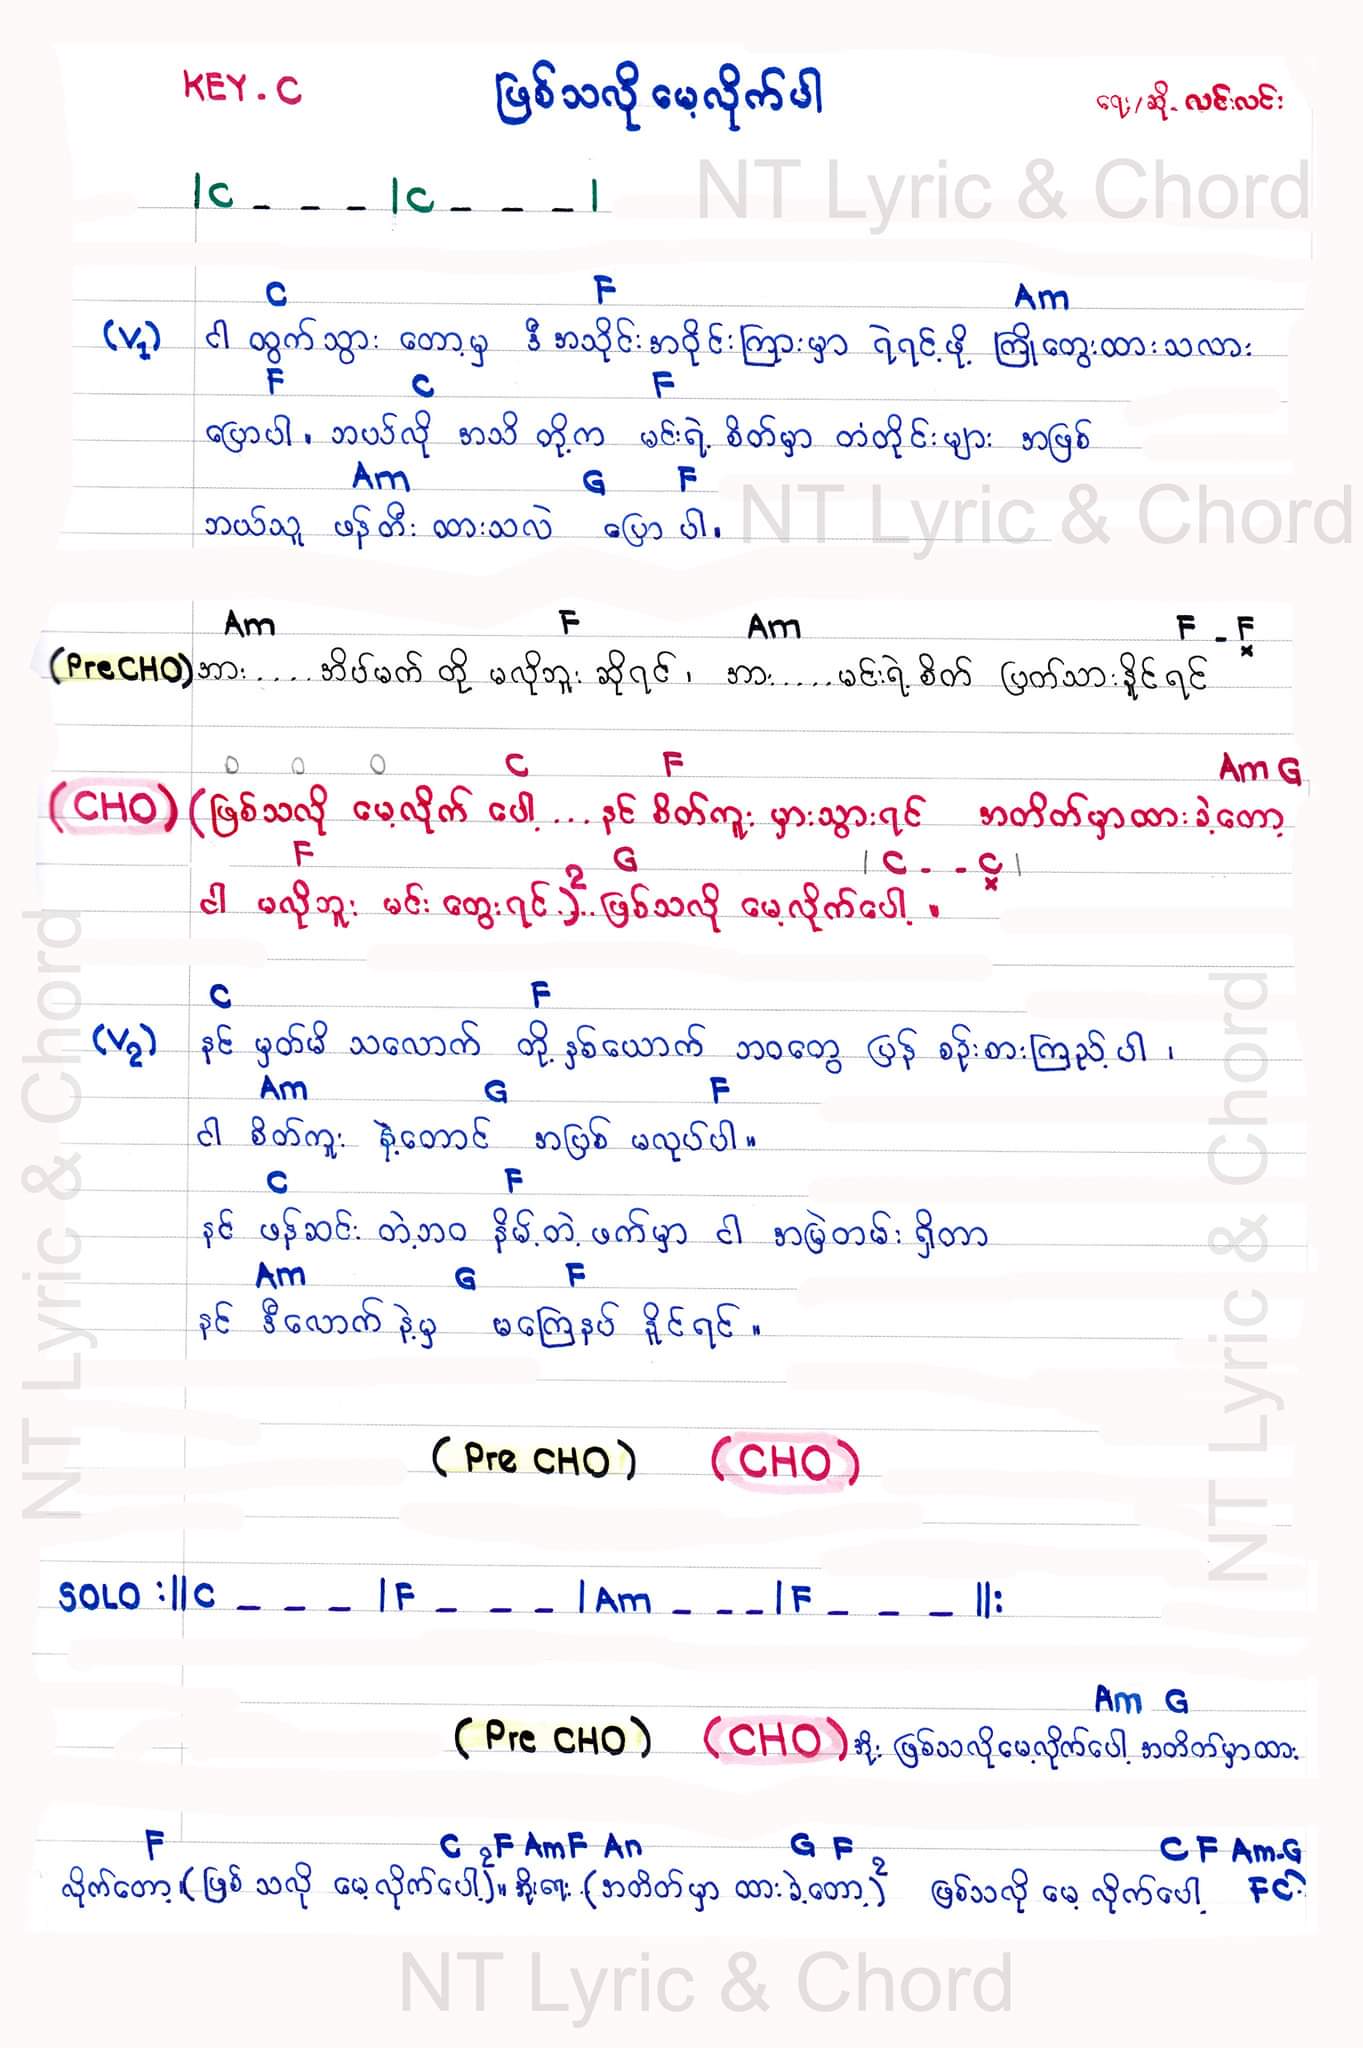 KEY. C
ဖြစ်သလို မေ့လိုက်ပါ
ရေး/ဆို - လင်းလင်း
|C _ _ _ |C _ _ _|
NT Lyric & Chord
C F Am
(V1) ငါ ထွက်သွား တော့မှ ဒီ အသိုင်းအဝိုင်းကြားမှာ ရဲရင့်ဖို့ ကြိုတွေးထားသလား
F C F
ပြောပါ။ ဘယ်လို အသိ တို့က မင်းရဲ့ စိတ်မှာ တံတိုင်းများ အဖြစ်
Am G F
NT Lyric & Chord
ဘယ်သူ ဖန်တီး ထားသလဲ ပြော ပါ။
Am F Am F - F
(Pre CHO) အား.... အိပ်မက် တို့ မလိုဘူး ဆိုရင်၊ အား..... မင်းရဲ့ စိတ် ပြက်သားနိုင်ရင်
C F Am G
(CHO) (ဖြစ်သလို မေ့လိုက် ပေါ့... နင် စိတ်ကူး မှားသွားရင် အတိတ်မှာထားခဲ့တော့
F G | C - - C |
ငါ မလိုဘူး မင်း တွေးရင်.)2.. ဖြစ်သလို မေ့လိုက်ပေါ့ ။
C F
(V2) နင် မှတ်မိ သလောက် တို့ နှစ်ယောက် ဘဝတွေ ပြန် စဉ်းစားကြည့်ပါ ၊
Am G F
ငါ စိတ်ကူး နဲ့တောင် အပြစ် မလုပ်ပါ။
C F
နင် ဖန်ဆင်း တဲ့ဘဝ နိမ့်တဲ့ ဖက်မှာ ငါ အမြဲတမ်း ရှိတာ
Am G F
နင် ဒီလောက် နဲ့မှ မကြေနပ် နိုင်ရင် ။
(Pre CHO) (CHO)
SOLO :||C _ _ _ |F _ _ _ |Am _ _ _ |F _ _ _ ||:
Am G
(Pre CHO) (CHO) အိုး ဖြစ်သလိုမေ့လိုက်ပေါ့ အတိတ်မှာထား
F C F Am F An G F C F Am-G
လိုက်တော့။ (ဖြစ် သလို မေ့လိုက်ပေါ့)2။ အိုးရေး (အတိတ်မှာ ထားခဲ့တော့)2 ဖြစ်သလို မေ့ လိုက်ပေါ့ FC
NT Lyric & Chord
NT Lyric & Chord
NT Lyric & Chord